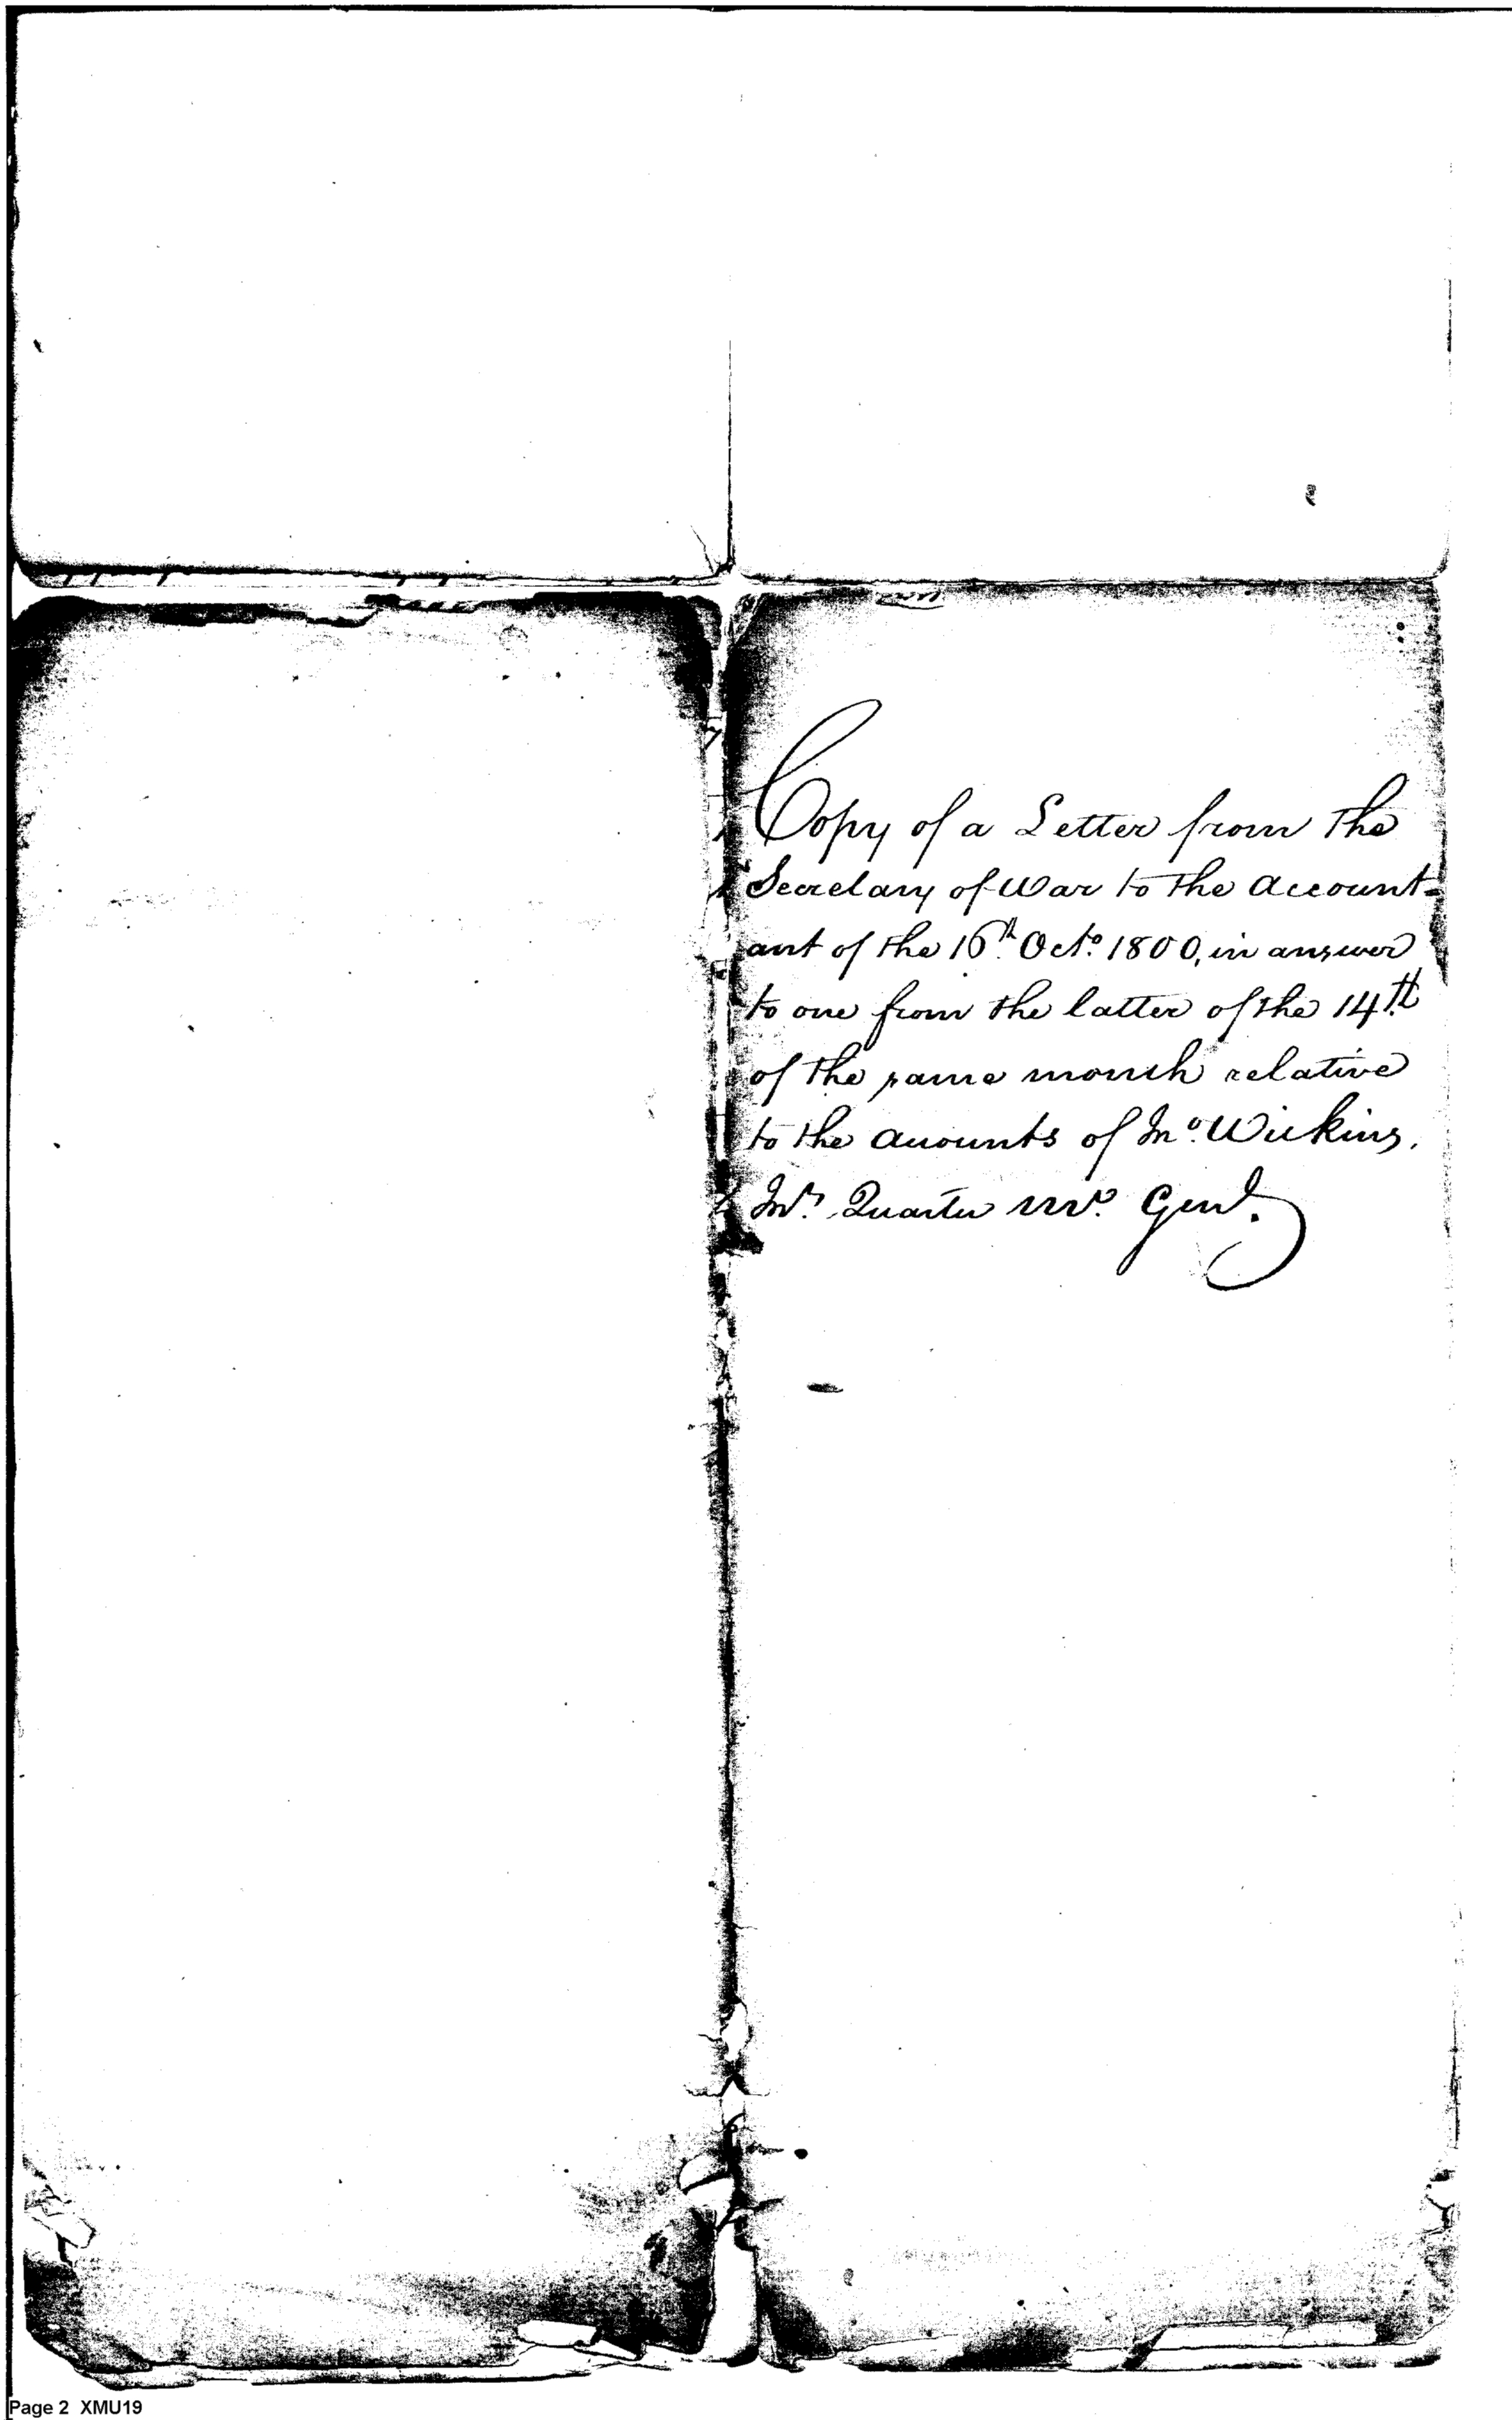 Copy of a Letter from the
Secretary of War to the Account=
ant of the 16th. Octo. 1800, in answer
to one from the latter of the 14th.
of the same month relative
to the accounts of Jno. Wilkins,
Jnr. Quarter Mr. Genl.
Page 2 XMU19